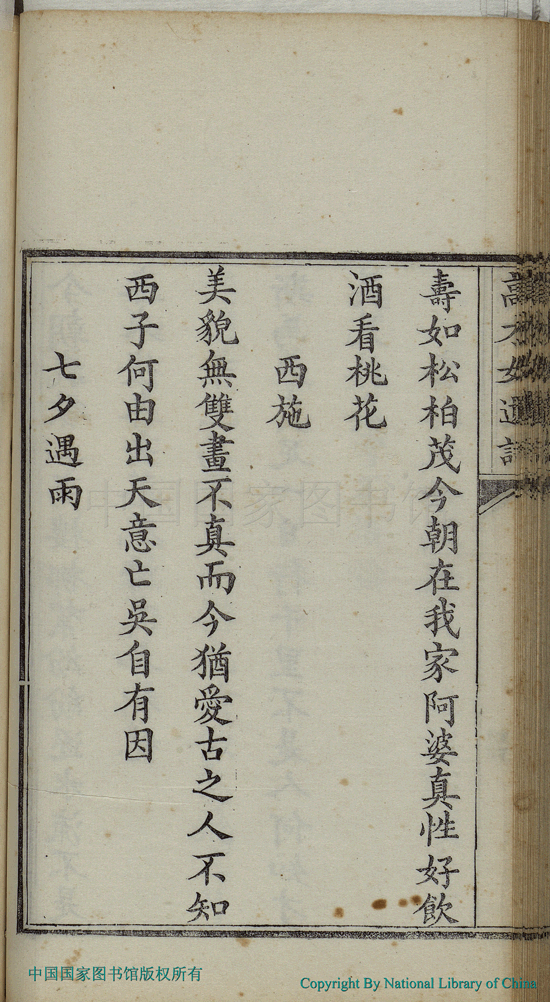 壽如松柏茂今朝在我家阿婆真性好飲
酒看桃花
西施
美貌無雙畫不真而今猶愛古之人不知
西子何由出天意亡吳自有因
七夕遇雨
中国国家图书馆
中国国家图书馆版权所有
Copyright By National Library of China